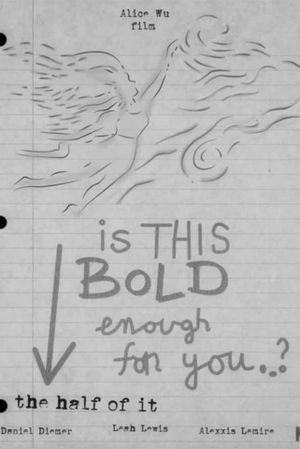 Alice Wu
film
is THIS
BOLD
enough
for you..?
the half of it
Daniel Diemer Leah Lewis Alexxis Lemire